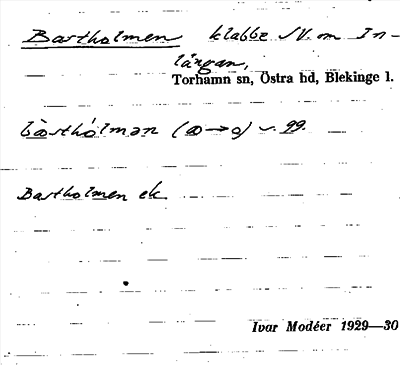 Bartholmen klabbe SV. om In-
längan,
Torhamn sn, Östra hd, Blekinge l.
bàrthólmən (ꝏ→a) ~. 99.
Bartholmen ek
Ivar Modéer 1929—30